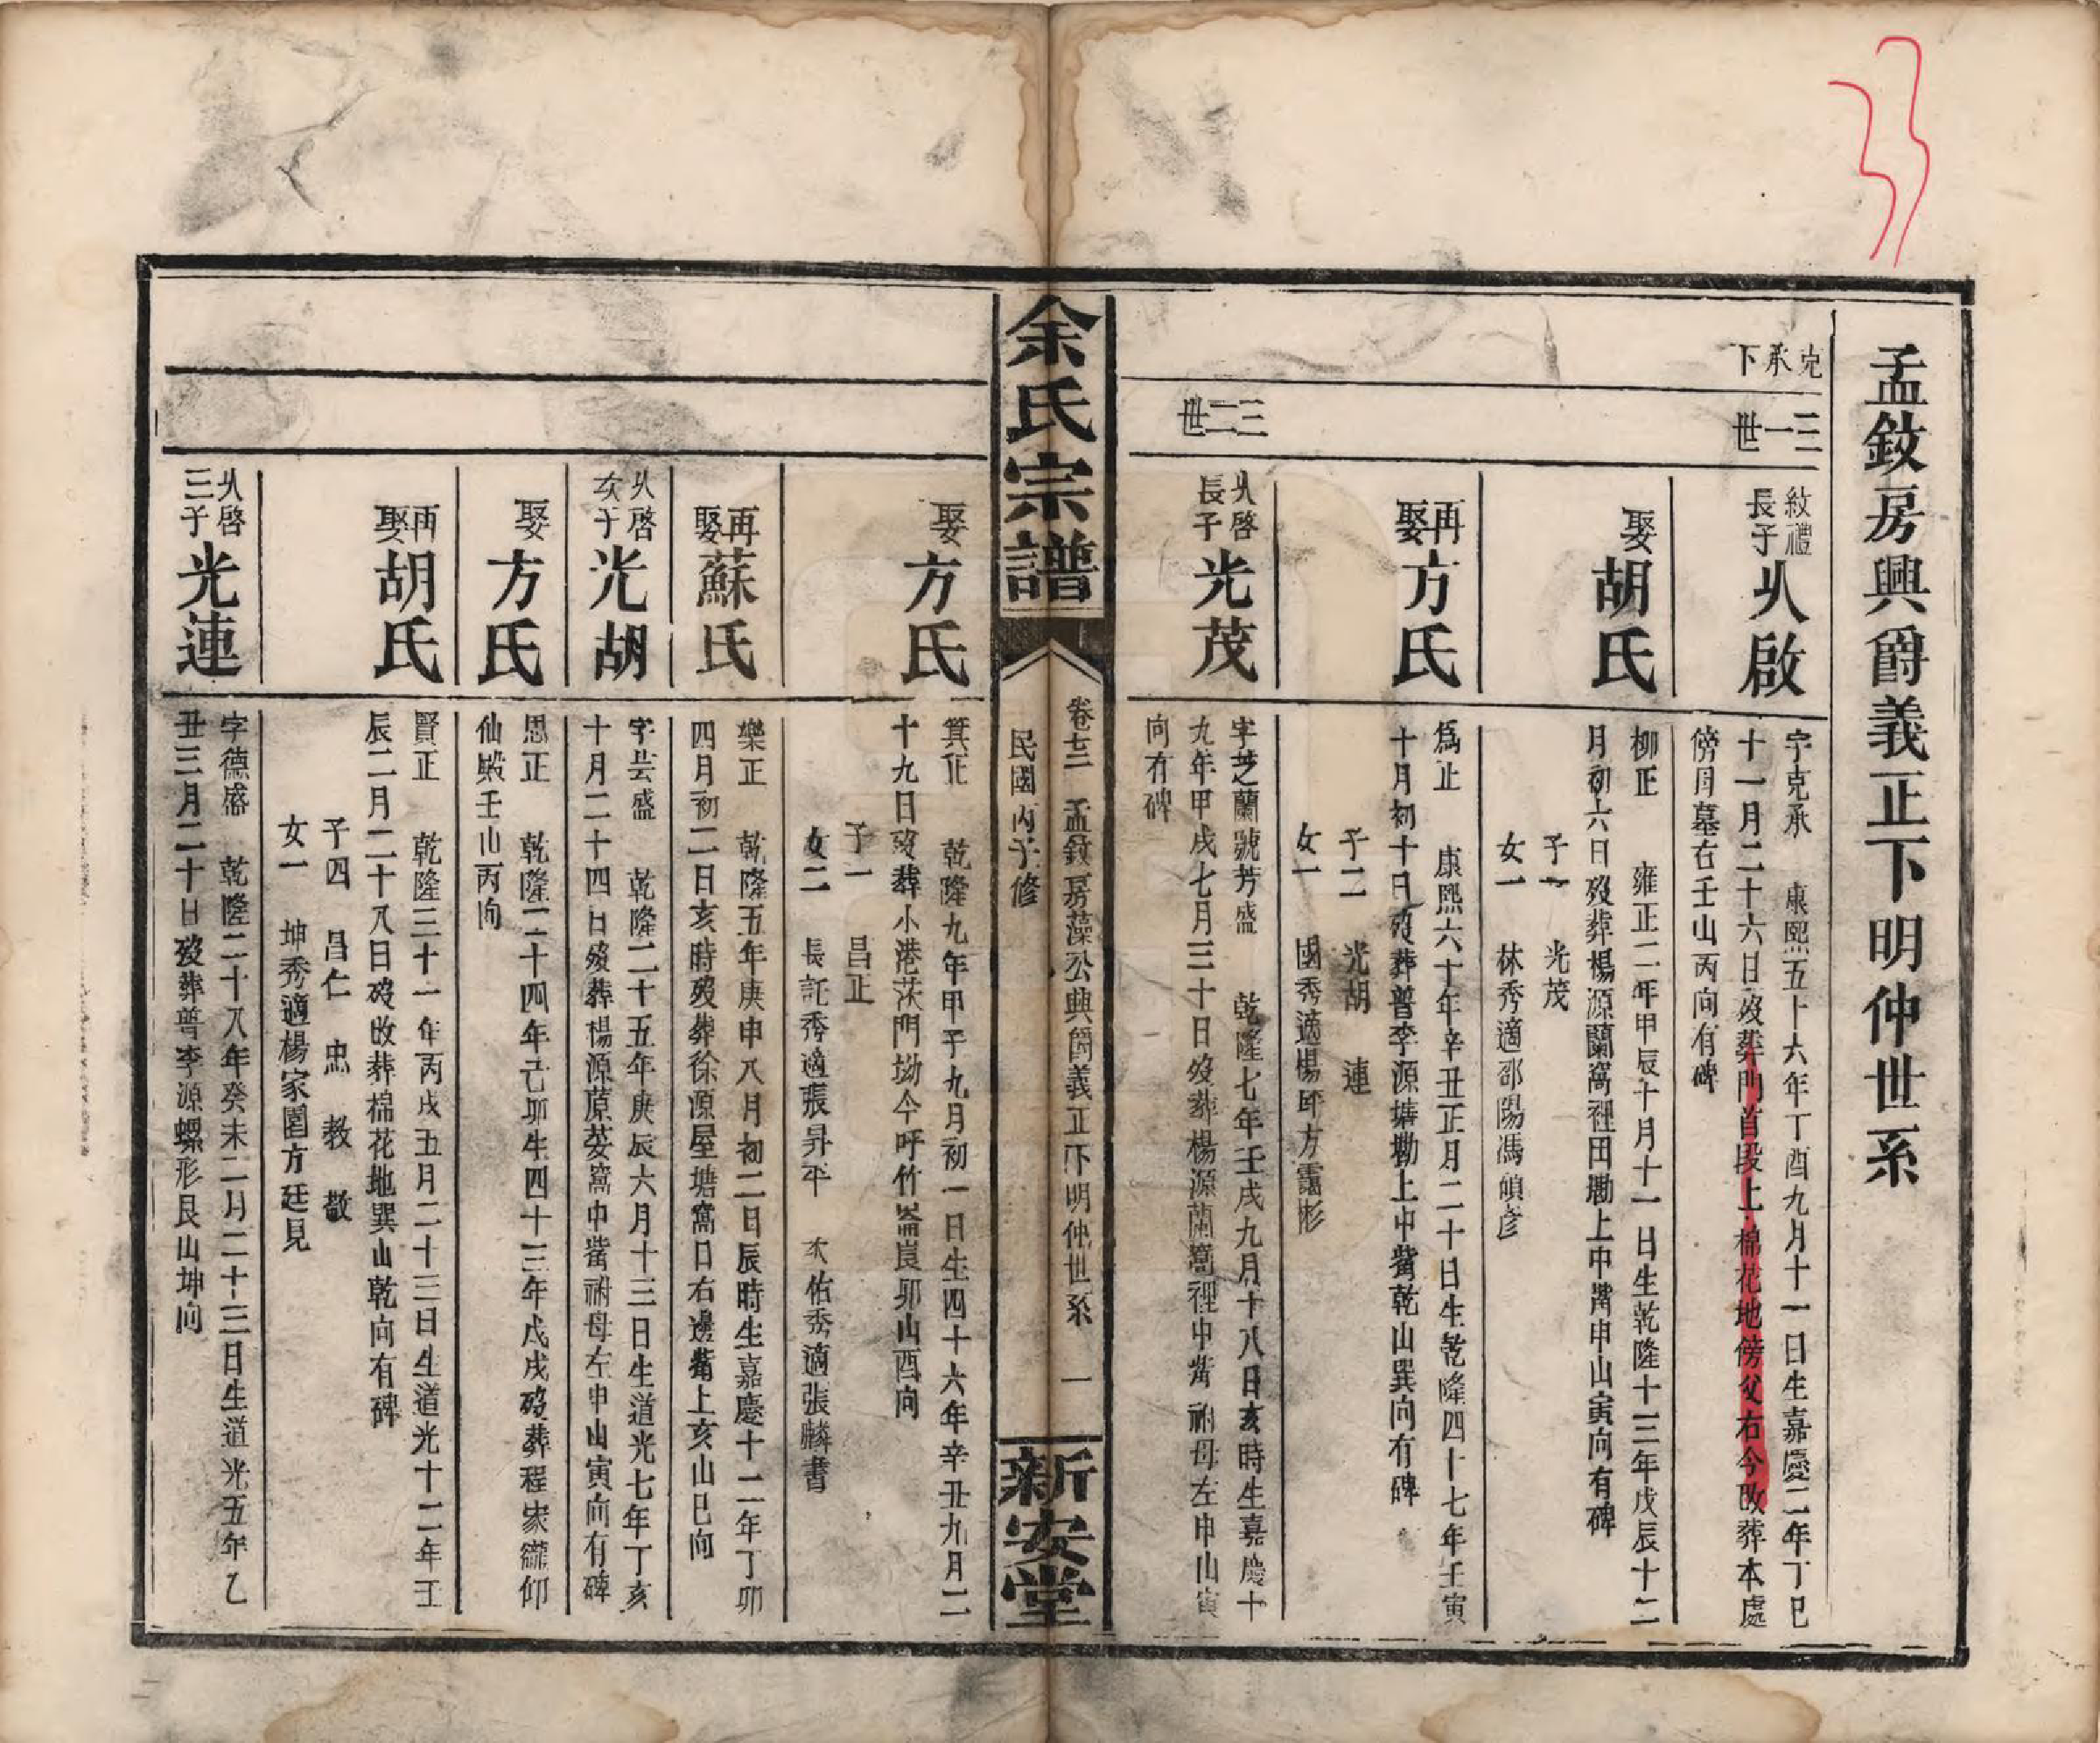 孟敘房興爵義正下明仲世系
克承下
三一世
紋禮長子
㳄啟
字克承 康熙五十六年丁酉九月十一日生嘉慶二年丁巳
十一月二十六日歿葬門首段上棉花地傍父右今改葬本處
傍月墓右壬山丙向有碑
娶
胡氏
柳正 雍正二年甲辰十月十一日生乾隆十三年戊辰十二
月初六日歿葬楊源蘭窩裡田墈上中嘴申山寅向有碑
子一 光茂
女一 林秀適邵陽馮 彥
再娶
方氏
為正 康熙六十年辛丑正月二十日生乾隆四十七年壬寅
十月初十日歿葬普李源塘墈上中嘴乾山巽向有碑
子二 光胡 連
女一 國秀適楊 方靄彬
三二世
㳄啓長子
光茂
字芝蘭號芳盛 乾隆七年壬戌九月十八日亥時生嘉慶十
九年甲戌七月三十日歿葬楊源蘭窩裡中嘴祔母左申山寅
向有碑
余氏宗譜
卷七三 孟敘房藻公興爵義正下明仲世系 一
民國丙子修
新安堂
娶
方氏
箕正 乾隆九年甲子九月初一日生四十六年辛丑九月二
十九日歿葬小港茨門坳今呼竹崙崀卯山酉向
子一 昌正
女二 長託秀適張昇平 次佑秀適張麟書
再娶
蘇氏
樂正 乾隆五年庚申八月初二日辰時生嘉慶十二年丁卯
四月初二日亥時歿葬徐源屋塘窩口右邊嘴上亥山巳向
㳄啓次子
光胡
字芸盛 乾隆二十五年庚辰六月十三日生道光七年丁亥
十月二十四日歿葬楊源蔍荽窩中嘴祔母左申山寅向有碑
娶
方氏
思正 乾隆二十四年己卯生四十三年戊戌歿葬程家 仰
仙殿壬山丙向
再娶
胡氏
賢正 乾隆三十一年丙戌五月二十三日生道光十二年壬
辰二月二十八日歿改葬棉花地巽山乾向有碑
子四 昌仁 忠 教 敬
女一 坤秀適楊家園方廷見
㳄啓三子
光連
字德盛 乾隆二十八年癸未二月二十三日生道光五年乙
丑三月二十日歿葬普李源螺形艮山坤向